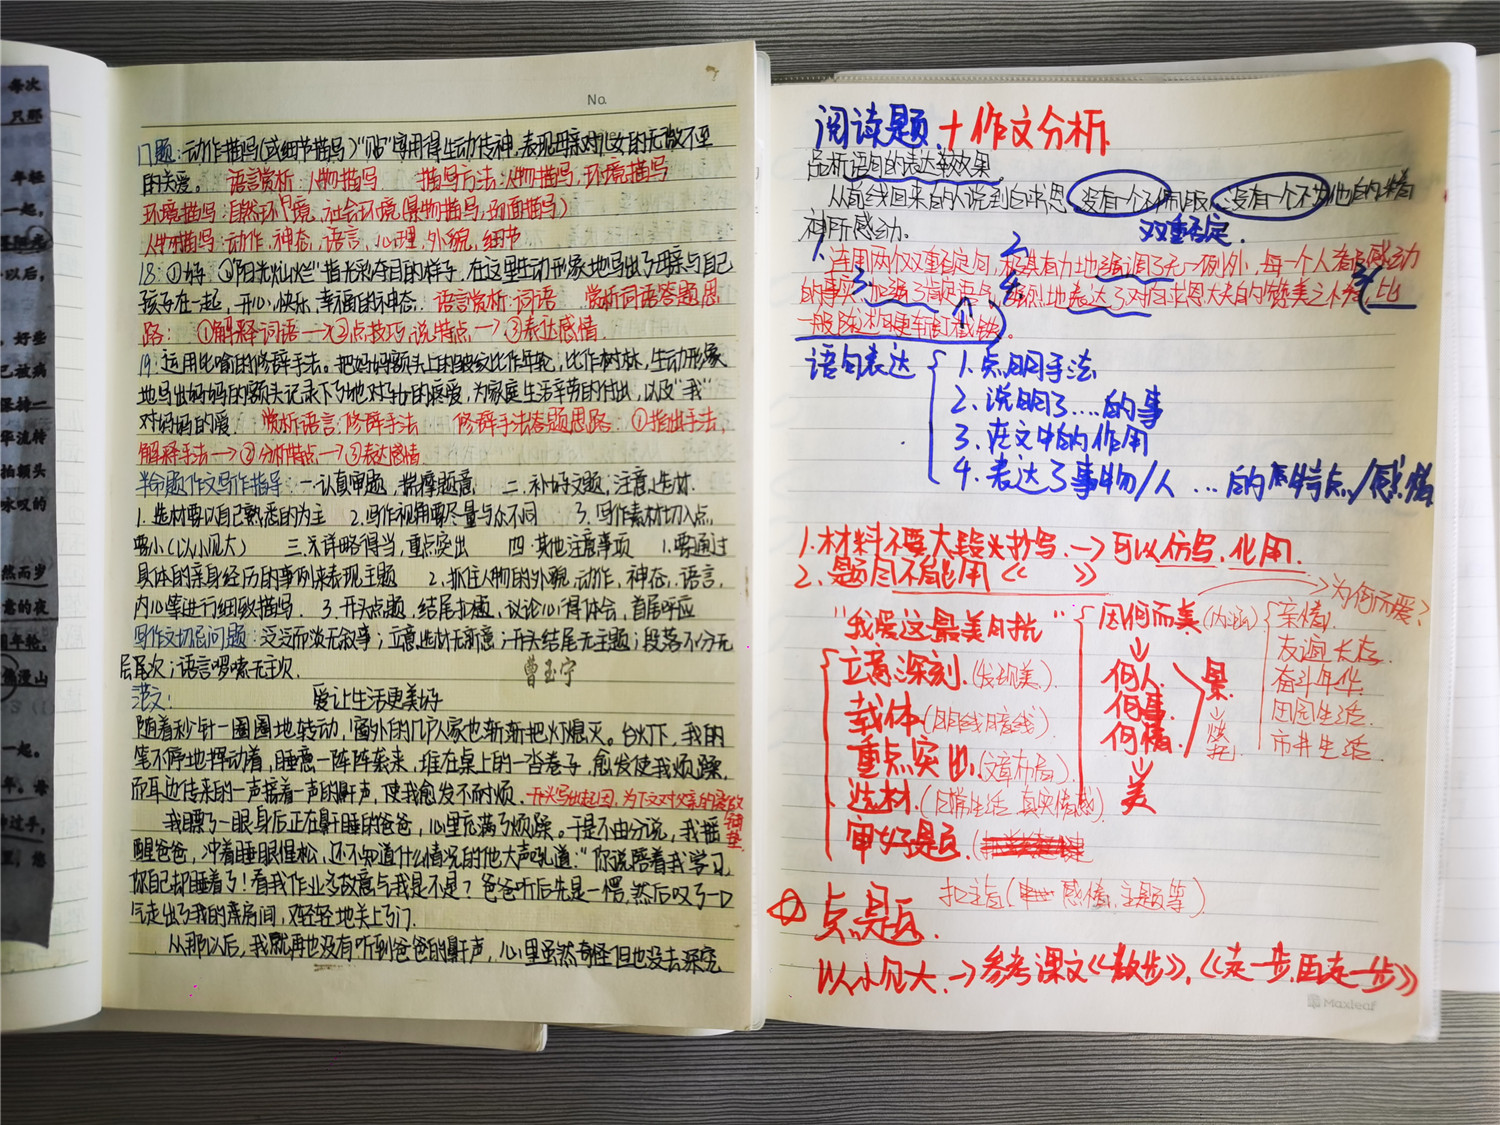 每次
只那
年轻
一起，
以后，
好些
己被病
华流转
拍额头
咏叹的
然而岁
意的夜
漫山
一起。
过手，
No.
17题：动作描写(或细节描写)"贴"字用得生动传神，表现母亲对儿女的无微不至
的关爱。 语言赏析：人物描写 描写方法：人物描写，环境描写
环境描写：自然环境，社会环境(景物描写，场面描写)
人物描写：动作，神态，语言，心理，外貌，细节
18：①好：②"阳光灿烂"指光彩夺目的样子，在这里生动形象地写出了母亲与自己
孩子在一起，开心，快乐，幸福的神态。 语言赏析：词语 赏析词语答题思
路： ①解释词语→②点技巧，说特点→③表达感情。
19：运用比喻的修辞手法。把妈妈额头上的皱纹比作年轮，比作树林，生动形象
地写出妈妈的额头记录下了她对子女的疼爱，为家庭生活辛劳的付出，以及"我"
对妈妈的爱。 赏析语言：修辞手法 修辞手法答题思路：①指出手法，
解释手法→②分析特点→③表达感情
半命题作文写作指导：一.认真审题，揣摩题意 二.补好文题，注意选材.
1.选材要以自己熟悉的为主 2.写作视角要尽量与众不同 3.写作素材切入点
要小(以小见大) 三.详略得当，重点突出 四.其他注意事项 1.要通过
具体的亲身经历的事例来表现主题 2.抓住人物的外貌，动作，神态，语言，
内心等进行细致描写. 3.开头点题，结尾扣题，议论心得体会，首尾呼应
写作文切忌问题：泛泛而谈无叙事；立意选材无新意；开头结尾无主题；段落不分无
层次；语言啰嗦无主次. 曹玉宁
范文： 爱让生活更美好
随着秒针一圈圈地转动，窗外的几户人家也渐渐把灯熄灭。台灯下，我的
笔不停地挥动着，睡意一阵阵袭来，堆在桌上的一沓卷子，愈发使我烦躁，
而耳边传来的一声接着一声的鼾声，使我愈发不耐烦. 开头写出起因，为下文对父亲的
我瞟了一眼身后正在鼾睡的爸爸，心里充满了烦躁。于是不由分说，我摇
醒爸爸，冲着睡眼惺忪，还不知道什么情况的他大声吼道："你说陪着我学习，
你自己却睡着了！看我作业多故意气我是不是？爸爸听后先是一愣，然后叹了一口
气走出了我的房间，又轻轻地关上了门.
从那以后，我就再也没有听到爸爸的鼾声，心里虽然奇怪但也没去深究
阅读题+作文分析.
品析语句的表达效果。
从前线回来的人说到白求恩，没有一个不佩服，没有一个不为他的精
神所感动. 双重否定.
1.连用两个双重否定句，极具有力地强调了无一例外，每一个人都感动
的事实，加强了肯定语气，强烈地表达了对白求恩大夫的赞美之情，比
一般陈述句更斩钉截铁。
语句表达
1.点明手法
2.说明了....的事
3.在文中的作用
4.表达了事物/人 ...的特点/感情
1.材料不要大段头抄写.→可以仿写，化用.
2.题目不能用《 》
"我爱这最美时光" 因何而美(内涵) 为何而爱？
立意深刻.(发现美.)
载体(明线暗线).
重点突出.(文章布局).
选材.(日常生活，真实情感)
审好题.
何人.
何事.
何情.
美
景
亲情.
友谊长存.
奋斗年华.
田园生活.
市井生活.
点题. 扣主旨( 感情，主题等)
以小见大.→参考课文《散步》，《走一步，再走一步》
Maxleaf